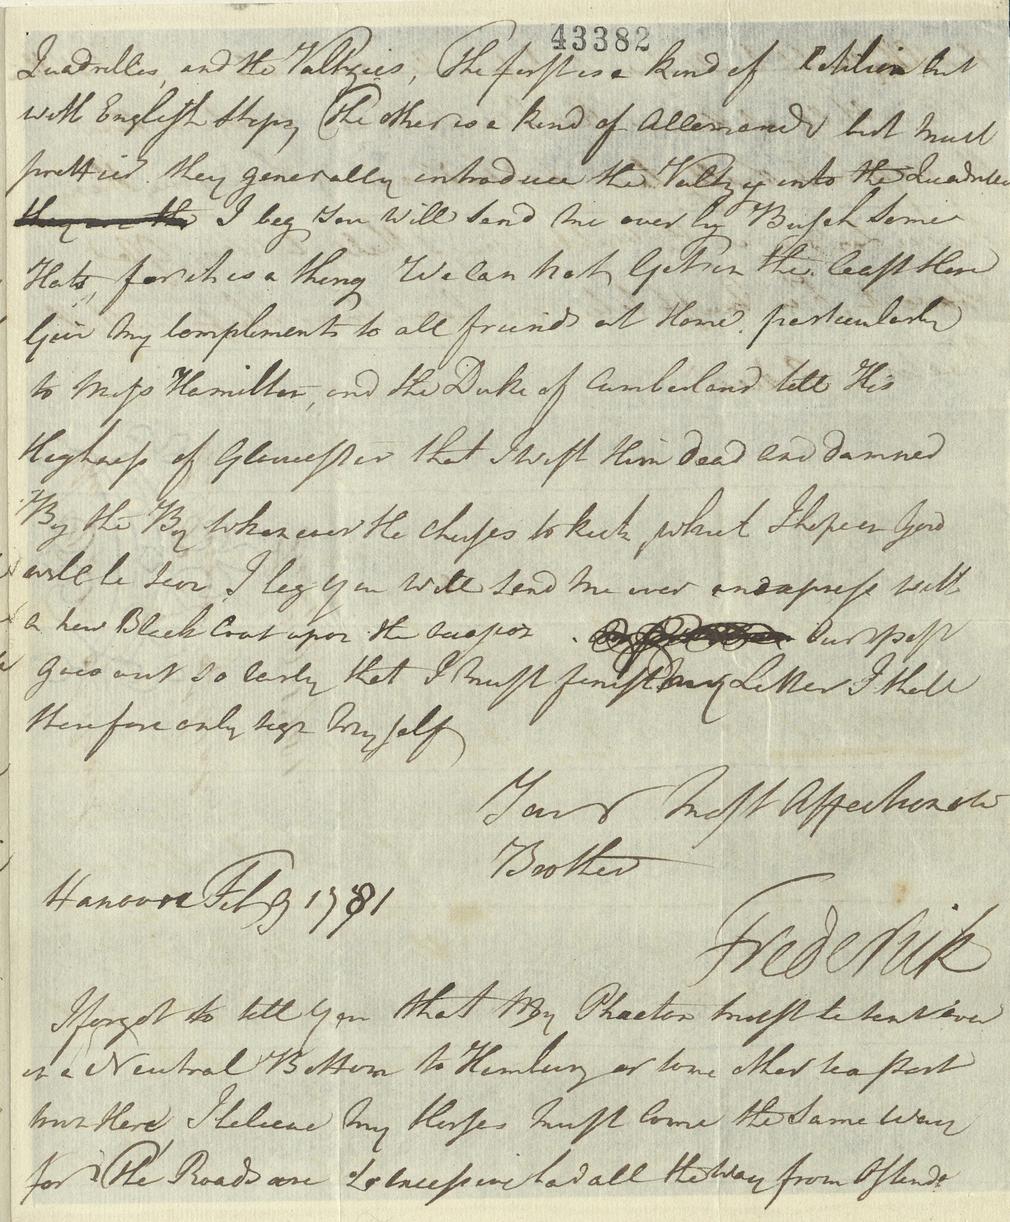 43382
Quadrilles, and the Valtzies, The first is a kind of Cotilion but
with English steps, The other is a kind of Allemande but much
prettier. they generally introduce the Valtzy into the Quadrilles
they are the I beg you will send me over by Busch some
Hats, for it is a thing We can not get in the least Here
Give my compliments to all friends at Home. particularly
to Miss Hamilton, and the Duke of Cumberland tell His
Highness of Gloucester that I wish Him dead and damned
By the By whenever He chuses to kick, which I hope in God
will be soon I beg you will send me over an express with
a new Black Coat upon the occasion. Our post
goes out so early that I must finish my Letter I shall
therefore only sign myself
Your most Affectionate
Brother
Hanover Feb 9 1781
Frederick
I forgot to tell you that My Phaeton must be sent over
in a Neutral Bottom to Hamburg or some other sea Port
near Here I believe my Horses must come the same way
for The Roads are so excessive bad all the way from Ostende